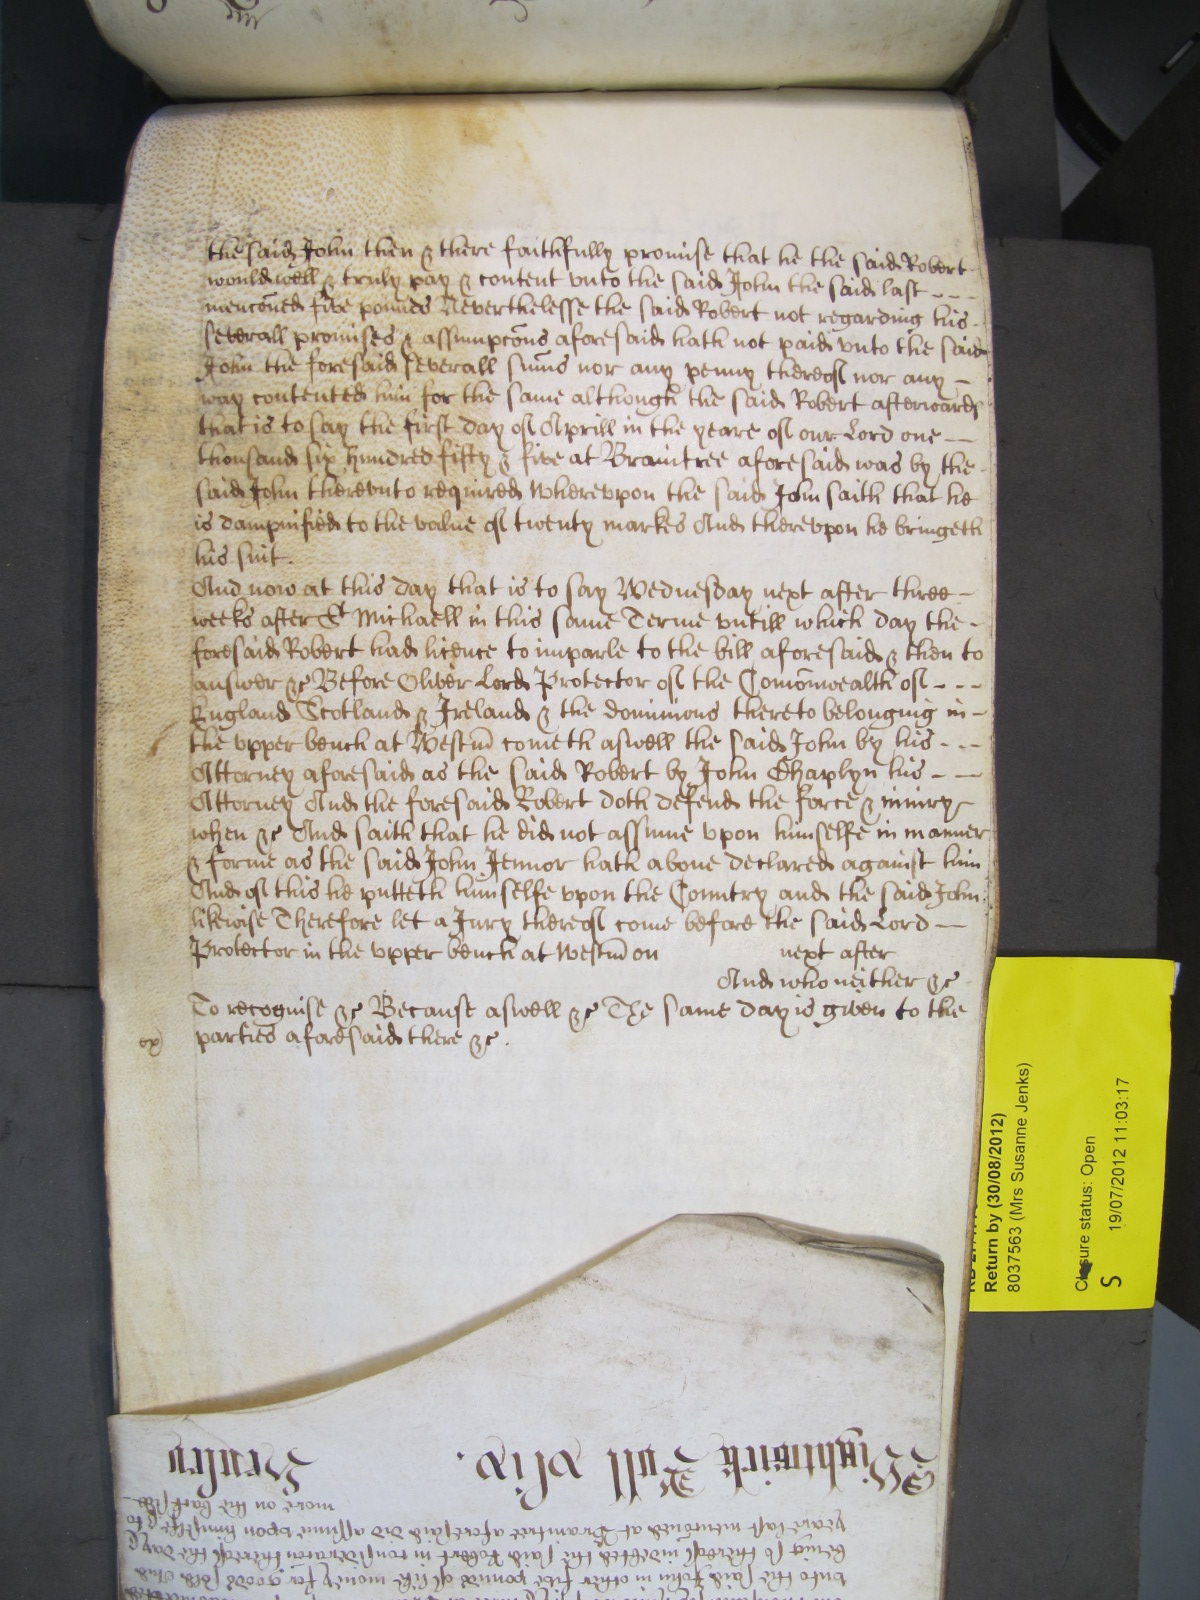 the said John then & there faithfully promise that he the said Robert
would well & truly pay & content vnto the said John the said last - - -
menconed five pounds Neverthelesse the said Robert not regarding his -
severall promises & assumpcons aforesaid hath not paid vnto the said
John the foresaid severall sums nor any penny thereof nor any -
way contented him for the same although the said Robert afterwards
that is to say the first day of Aprill in the yeare of our Lord one -
thousand six hundred fifty & five at Braintree aforesaid was by the -
said John therevnto required Wherevpon the said John saith that he
is dampnified to the value of twenty markes And therevpon he bringeth
his suit.
And now at this day that is to say Wednesday next after three -
weeks after St Michaell in this same Terme vntill which day the -
foresaid Robert had licence to imparle to the bill aforesaid & then to
answer &c Before Oliver Lord Protector of the Comonwealth of - - -
England Scotland & Ireland & the dominions thereto belonging in -
the vpper bench at Westm cometh aswell the said John by his - - -
Attorney aforesaid as the said Robert by John Chaplyn his - -
Attorney And the foresaid Robert doth defend the force & iniury
when &c And saith that he did not assume vpon himselfe in manner
& forme as the said John Jennor hath aboue declared against him
And of this he putteth himselfe vpon the Country and the said John
likewise Therefore let a Jury thereof come before the said Lord -
Protector in the vpper bench at Westm on next after
And who neither &c
To recognise &c Because aswell &c The same day is given to the
parties aforesaid there &c.
ex
Return by (30/08/2012)
8037563 (Mrs Susanne Jenks)
Closure status: Open
S 19/07/2012 11:03:17
Wightwick Roll
more on the back side
yeare last menconed at Braintree aforesaid did assume vpon himselfe & to
being so thereof indebted the said Robert in consideracon thereof the day &
vnto the said John in other five pounds of like money for goods sold And